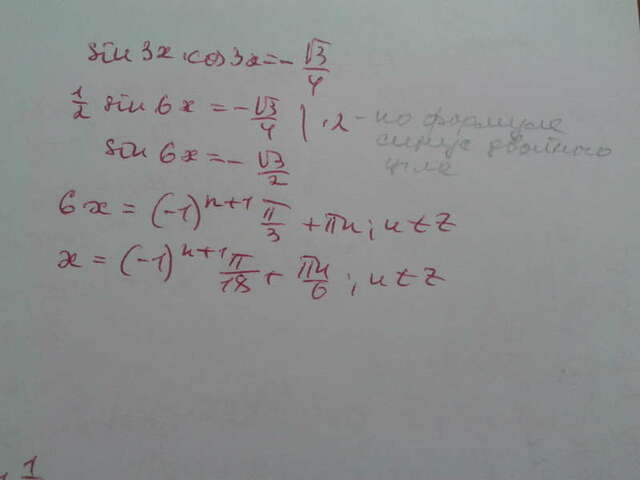 sin 3x · cos 3x = - √3/4
1/2 sin 6x = - √3/4 | · 2 - по формуле
синус двойного
угла
sin 6x = - √3/2
6x = (-1)ⁿ⁺¹ π/3 + πn ; n ∈ Z
x = (-1)ⁿ⁺¹ π/18 + πn/6 ; n ∈ Z
1